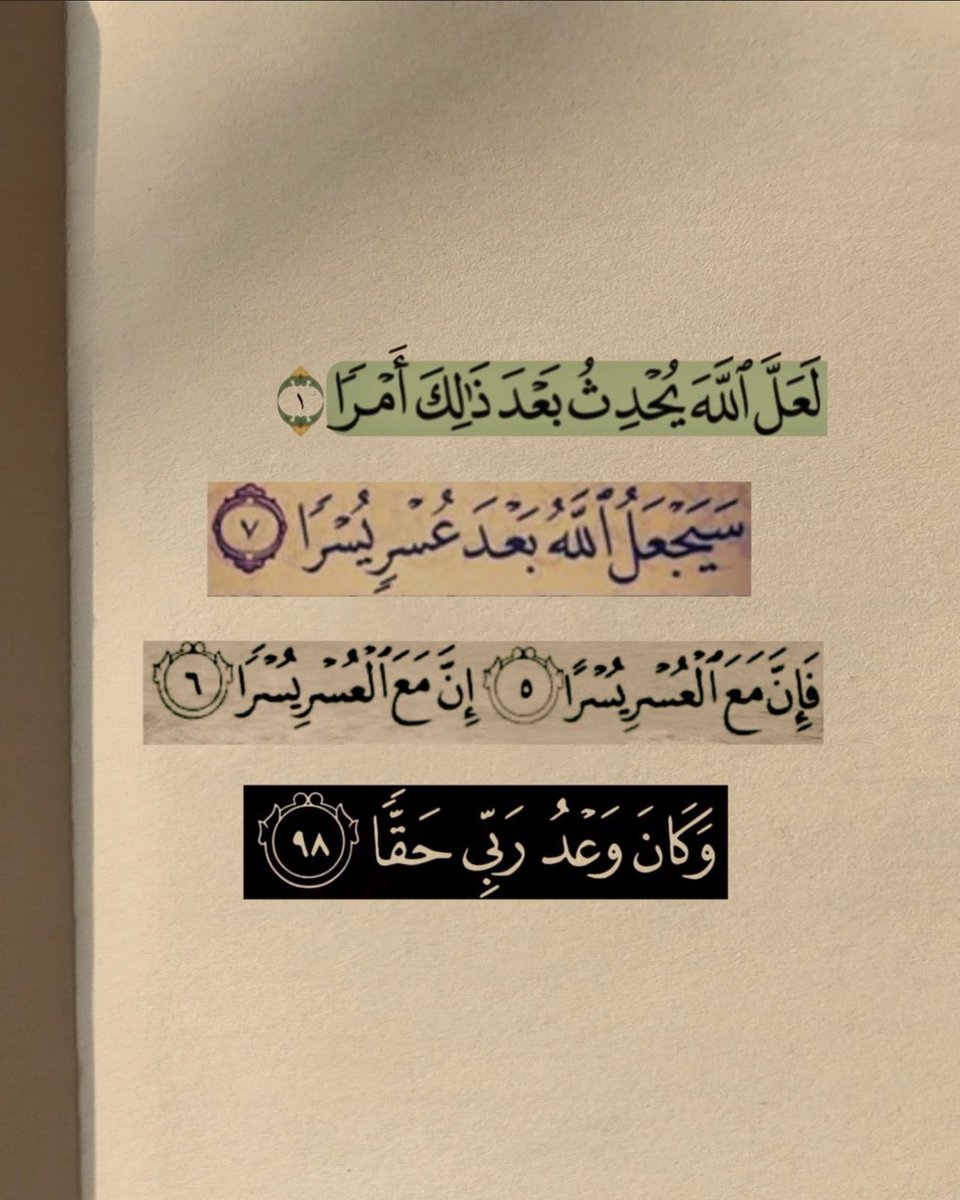 لَعَلَّ ٱللَّهَ يُحْدِثُ بَعْدَ ذَٰلِكَ أَمْرًا ١
سَيَجْعَلُ ٱللَّهُ بَعْدَ عُسْرٍ يُسْرًا ٧
فَإِنَّ مَعَ ٱلْعُسْرِ يُسْرًا ٥ إِنَّ مَعَ ٱلْعُسْرِ يُسْرًا ٦
وَكَانَ وَعْدُ رَبِّي حَقًّا ٩٨